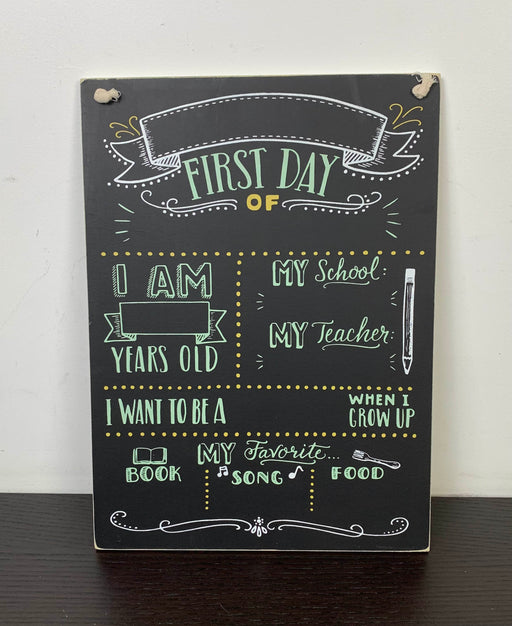 FIRST DAY
OF
I AM
YEARS OLD
MY School:
MY Teacher:
I WANT TO BE A
WHEN I
GROW UP
MY Favorite...
BOOK
SONG
FOOD